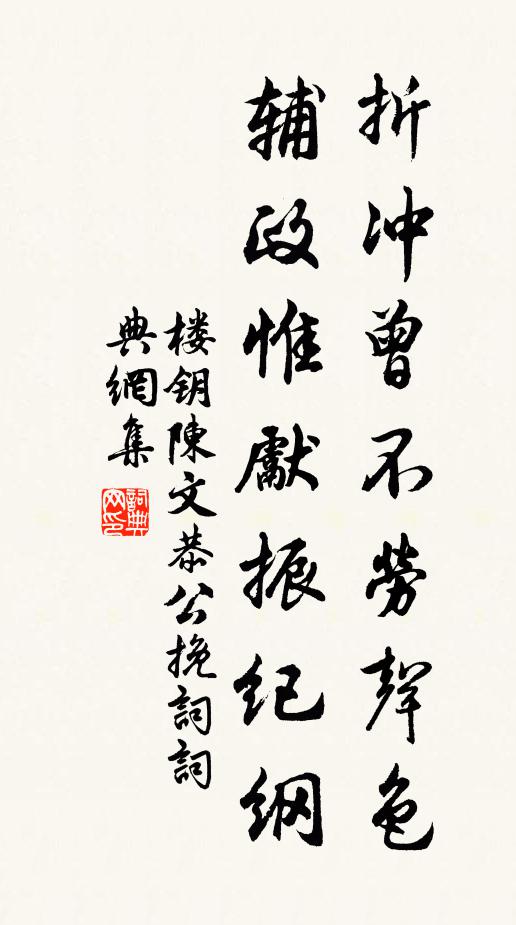 折冲曾不劳聲色
辅政惟獻振纪纲
楼钥陳文恭公挽詞詞
典網集
詞典
网印